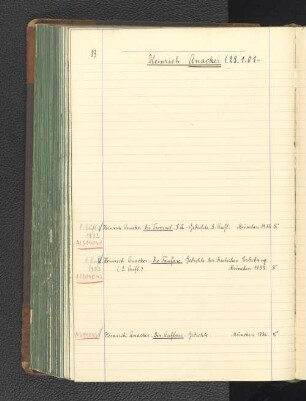 13
Heinrich Anacker (29.1.01-
Heinrich Anacker: Die Trommel. SA-Gedichte. 3. Aufl. München 1936. 8°
Heinrich Anacker: Die Fanfare. Gedichte der deutschen Erhebung
(2. Aufl.) München 1936. 8°
Heinrich Anacker: Der Aufbau. Gedichte. München 1936. 8°